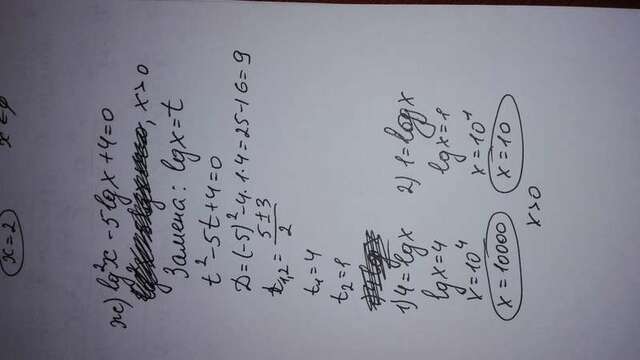 x = 2
ж) lg²x - 5lgx + 4 = 0
, x > 0
Замена: lgx = t
t² - 5t + 4 = 0
D = (-5)² - 4·1·4 = 25 - 16 = 9
t₁,₂ = (5 ± 3)/2
t₁ = 4
t₂ = 1
1) 4 = lgx
lgx = 4
x = 10⁴
x = 10000
2) 1 = logx
lgx = 1
x = 10¹
x = 10
x > 0